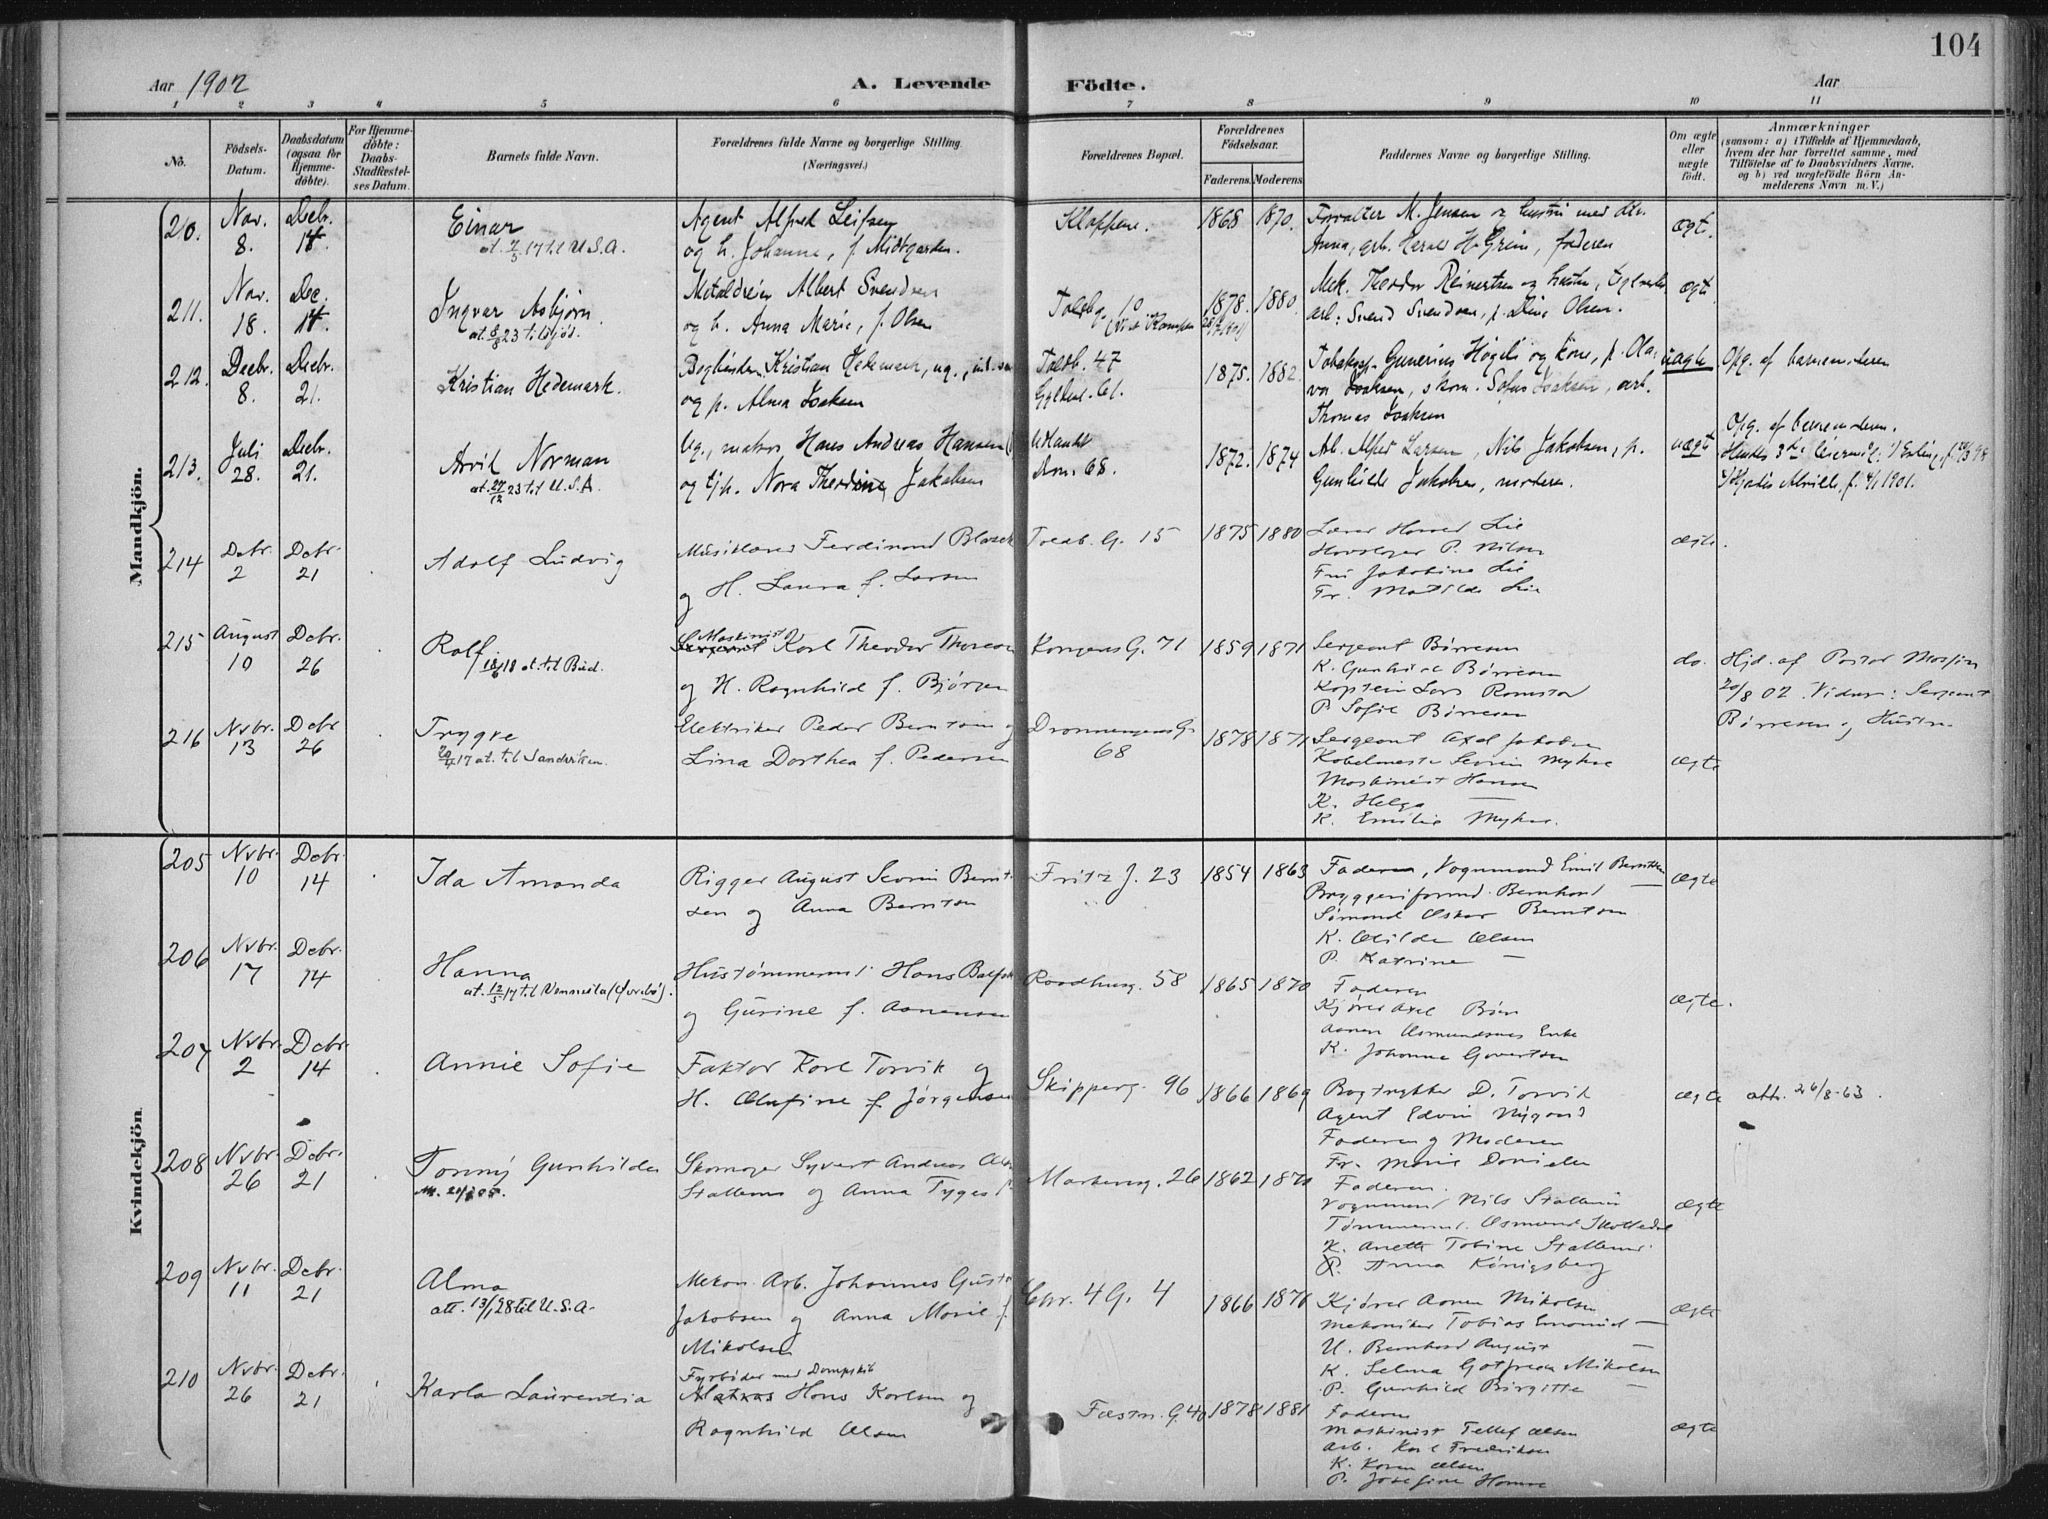 104
Aar 1902
A. Levende Födte.
Aar
1 2 3 4 5 6 7 8 9 10 11
No.
Födsels-
Datum.
Daabsdatum
(ogsaa for
Hjemme-
döbte).
For Hjemme-
döbte:
Daabs-
Stadfæstel-
ses Datum.
Barnets fulde Navn.
Forældrenes fulde Navne og borgerlige Stilling.
(Næringsvei.)
Forældrenes Bopæl.
Forældrenes
Födselsaar.
Faderens. Moderens.
Faddernes Navne og borgerlige Stilling.
Om ægte
eller
uægte
født.
Anmærkninger
(saasom: a) i Tilfælde af Hjemmedaab,
hvem der har forrettet samme, med
Tilföielse af to Daabsvidners Navne,
og b) ved uægtefödte Börn An-
melderens Navn m. V.)
Mandkjön.
210. Nov. 8. Decbr. 14
Einar
at. 17 til U.S.A.
Agent Alfred Leifsen
og h. Johanne, f. Midtgarden.
Kloppene. 1868 1870.
Forvalter M. Jensen og hustru med dtr.
Anna, arb. Harald H. Greim, faderen
ægt.
211. Nov. 18. Dec. 14
Ingvar Asbjørn.
at. 8/8 23 til
Metaldreier Albert Svendsen
og h. Anna Marie, f. Olsen
Toldbg. 10
1878. 1880.
Mek. Theodor Reinertsen og hustru,
arb: Svend Svendsen, p. Line Olsen.
ægte
212. Decbr. 8. Decbr. 21.
Kristian Hedemark.
Bogbinder Kristian Hedemark, ug.,
og p. Alma Isaksen
Toldb. 47
Gyldenl. 61.
1875. 1882.
Gunerius Høgeli og kone, p. Ola-
va Isaksen, skom. Sofus Isaksen, arb.
Thomas Isaksen
uægte
Opg. af barnemoderen
213. Juli 28. Decbr. 21.
Arvil Norman
at. 27/12 23 til U.S.A.
Ug., matros Hans Andreas Hansen
og tjp. Nora Theodine Jakobsen
Dron. 68.
1872. 1874
Arb. Alfred Larsen, Nils Jakobsen, p.
Gunhilde Jakobsen, moderen.
uægte
Opg. af barnemoderen.
Hindes 3die leiermål: 1/ Erling, f.
f. 4/1 1901.
214 Debr. 2 Debr. 21
Adolf Ludvig
Musiklærer Ferdinand
og H. Laura f. Larsen
Toldb. G. 15 1875 1880
Lærer Lie
P. Nilsen
Fru Jakobine Lie
Fr. Matilde Lie
ægte.
215 August 10 Debr. 26
Rolf
18 at. til Bud.
Maskinist
Sergeant Karl Theodor Thoresen
og H. Ragnhild f. Bjørsen
Kongens G. 71 1859 1871
Sergeant Børresen
K. Gunhild Børresen
Kaptein Lars
P. Sofie Børresen
do.
Hjd. af Pastor
20/8 02. Vidner: Sergeant
Børresen og Hustru
216 Nvbr. 13 Debr 26
Trygve
17 at. til Sandviken.
Elektriker Peder Berntsen og
Lina Dorthea f. Pedersen
Dronningens G.
68
1878 1871
Sergeant Axel Jakobsen
Maskinist Hansen
K. Helga —
K. Emilie
ægte
Kvindekjön.
205 Nvbr. 10 Debr. 14
Ida Amanda
Rigger August Severin Bernt-
sen og Anna Berntsen
Fritz J. 23 1854 1863
Faderen, Vognmand Emil Berntsen
Bryggeriformd. Bernhard —
Sømand Oskar Berntsen
K. Olsen
P. Katrine —
ægte
206 Nvbr. 17 Debr. 14
Hanna
at. 12/5 17 til Vennesla
Hustømmerm. Hans
og Gurine f. Aanensen
Raadhusg. 58 1865 1870
Faderen
Kjører Axel Bøen
Aanen Osmundsens Enke
K. Johanne Govertsen
ægte.
207 Nvbr. 2 Debr. 14
Annie Sofie
Faktor Karl Torvik og
H. Olufine f. Jørgensen
Skipperg. 96 1866 1869
Bogtrykker D. Torvik
Agent Edvin
Faderen og Moderen
Fr. Marie
ægte att. 26/8-63.
208 Nvbr. 26 Debr. 21
Tonny Gunhilde
Skomager Syvert Andreas
Stallemo og Anna
Markensg. 26 1862
Faderen.
Vognmand Nils Stallemo
Tømmerm. Osmund
K. Anette Tobine Stallemo
P. Anna Königsberg
ægte
209 Nvbr. 11 Debr. 21
Alma
att. 13/1 28 til U.S.A.
Mekan. Arb. Johannes
Jakobsen og Anna Marie f.
Mikalsen
Chr. 4 G. 4 1866 1871
Kjører Aanen Mikalsen
Mekaniker Tobias Emanuel —
U. Bernhard August —
K. Selma Mikalsen
P. Gunhild Birgitte —
ægte
210 Nvbr. 26 Debr. 21
Karla Laurentia
Fyrbøder med Dampskib
Matros Hans Karlsen og
Ragnhild Olsen
Fæstn. G. 40 1878 1881
Faderen
Maskinist Tellef Olsen
Arb. Karl Fredriksen
K. Karen Olsen
P. Josefine
ægte